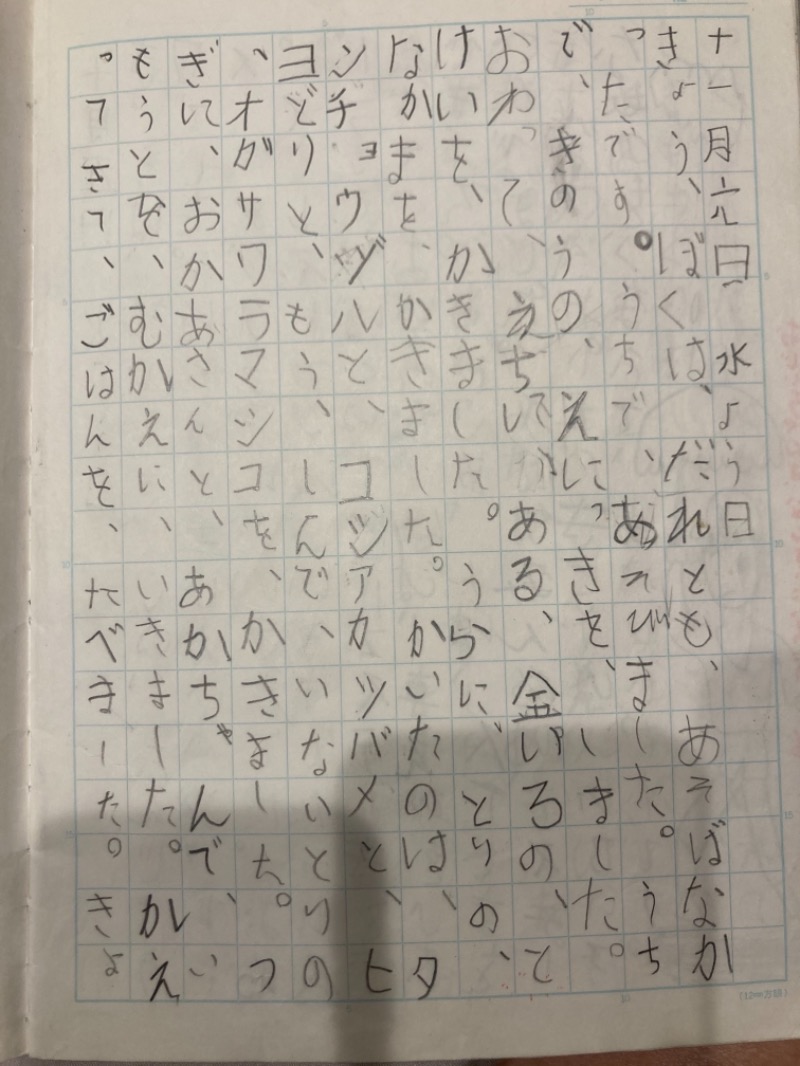 十一月六日 水よう日
きょう、ぼくは、だれとも、あそばなか
ったです。うちで、あそびました。うち
で、きのうの、えに、っきを、しました。
おわって、 ある、金いろの、と
けいを、かきました。うらに、とりの、
なかまを、かきました。かいたのは、タ
ンチョウヅルと、コシアカツバメと、ヒ
ヨドリと、もう、しんで、いないとりの
、オガサワラマシコを、かきました。つ
ぎに、おかあさんと、あかちゃんで、い
もうとを、むかえに、いきました。かえ
ってきて、ごはんを、たべました。きょ